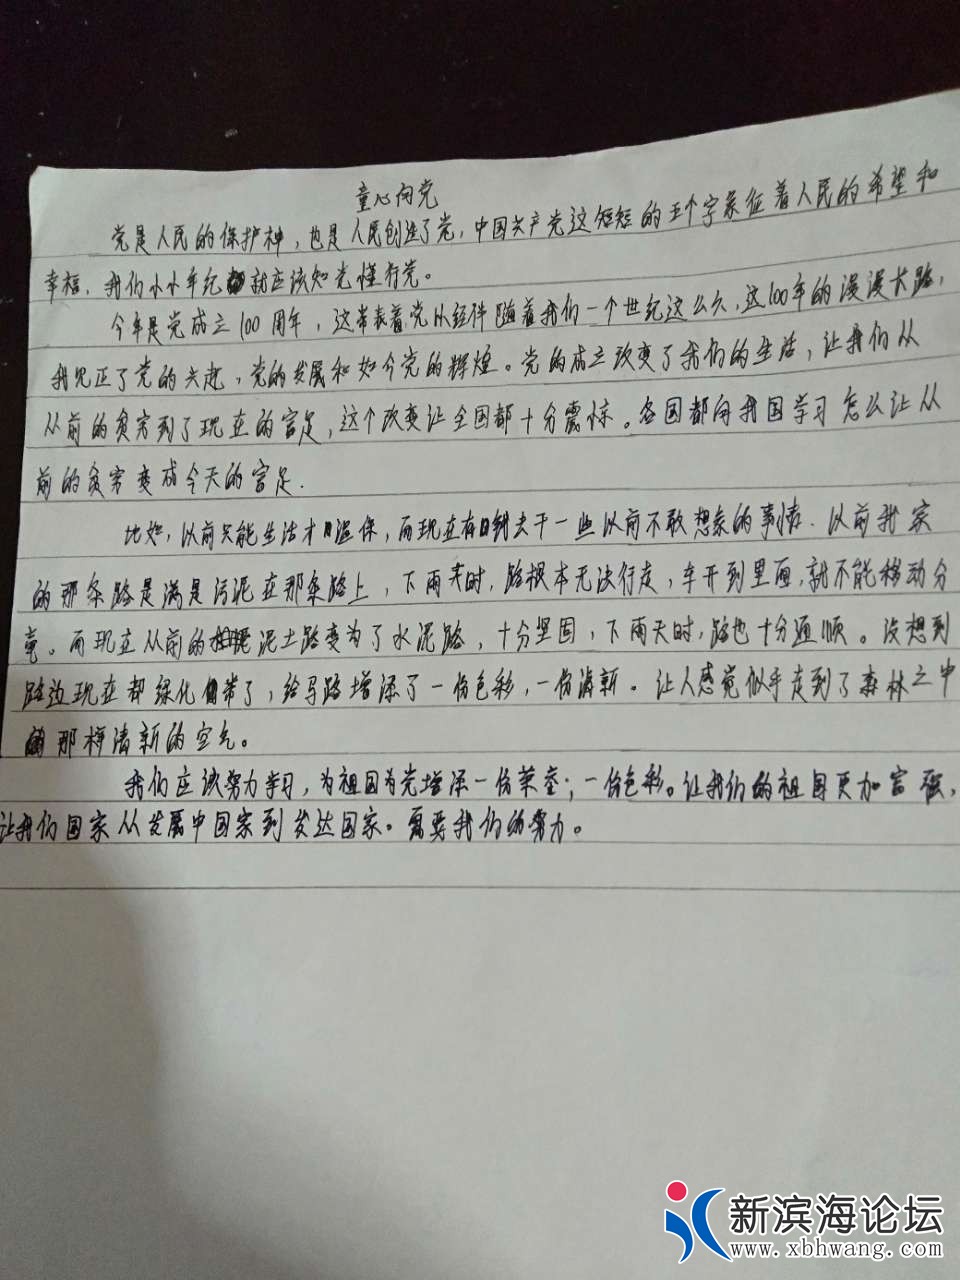 童心向党
党是人民的保护神，也是人民创造了党，中国共产党这短短的五个字象征着人民的希望和
幸福，我们小小年纪就应该知党懂行党。
今年是党成立100周年，这带表着党以经伴随着我们一个世纪这么久，这100年的漫漫长路，
我见正了党的兴起，党的发展和如今党的辉煌。党的成立改变了我们的生活，让我们从
从前的贫穷到了现在的富足，这个改变让全国都十分震惊。各国都向我国学习怎么让从
前的贫穷变成今天的富足.
比如，以前只能生活才温保，而现在有去干一些以前不敢想象的事情．以前我家
的那条路是满是污泥在那条路上，下雨天时，路根本无法行走，车开到里面，就不能移动分
毫。而现在从前的泥土路变为了水泥路，十分坚固，下雨天时，路也十分通顺。没想到
路边现在都绿化带了，给马路增添了一份色彩，一份清新。让人感觉似乎走到了森林之中
的那样清新的空气。
我们应该努力学习，为祖国为党增添一份荣奎；一份色彩。让我们的祖国更加富强，
让我们国家从发展中国家到发达国家。需要我们的努力。
新滨海论坛
www.xbhwang.com